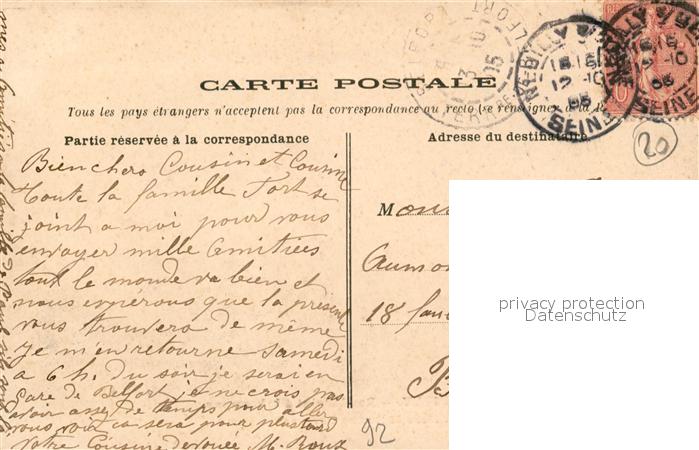 CARTE POSTALE
Tous les pays étrangers n'acceptent pas la correspondance au recto (se renseigner à la
Partie réservée à la correspondance
Bien chers Cousin et Cousine
Toute la famille Fort se
joint a moi pour vous
envoyer mille amitiées
tout le monde va bien et
nous espérons que la présente
vous trouvera de même
Je m'en retourne samedi
a 6 h. du soir je serai en
Gare de Belfort je ne crois pas
avoir assez de temps pour aller
vous voir ca sera pour plustard
votre Cousine dévouée M. Roux
92
Adresse du destinataire
20
Aumon
18e
privacy protection
Datenschutz